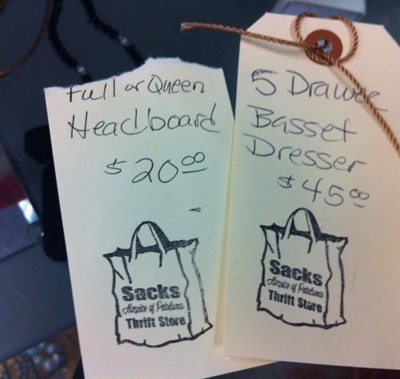 Full or Queen
Headboard
$20.00
Sacks
Hospice of Petaluma
Thrift Store
5 Drawer
Basset
Dresser
$45.00
Sacks
Hospice of Petaluma
Thrift Store